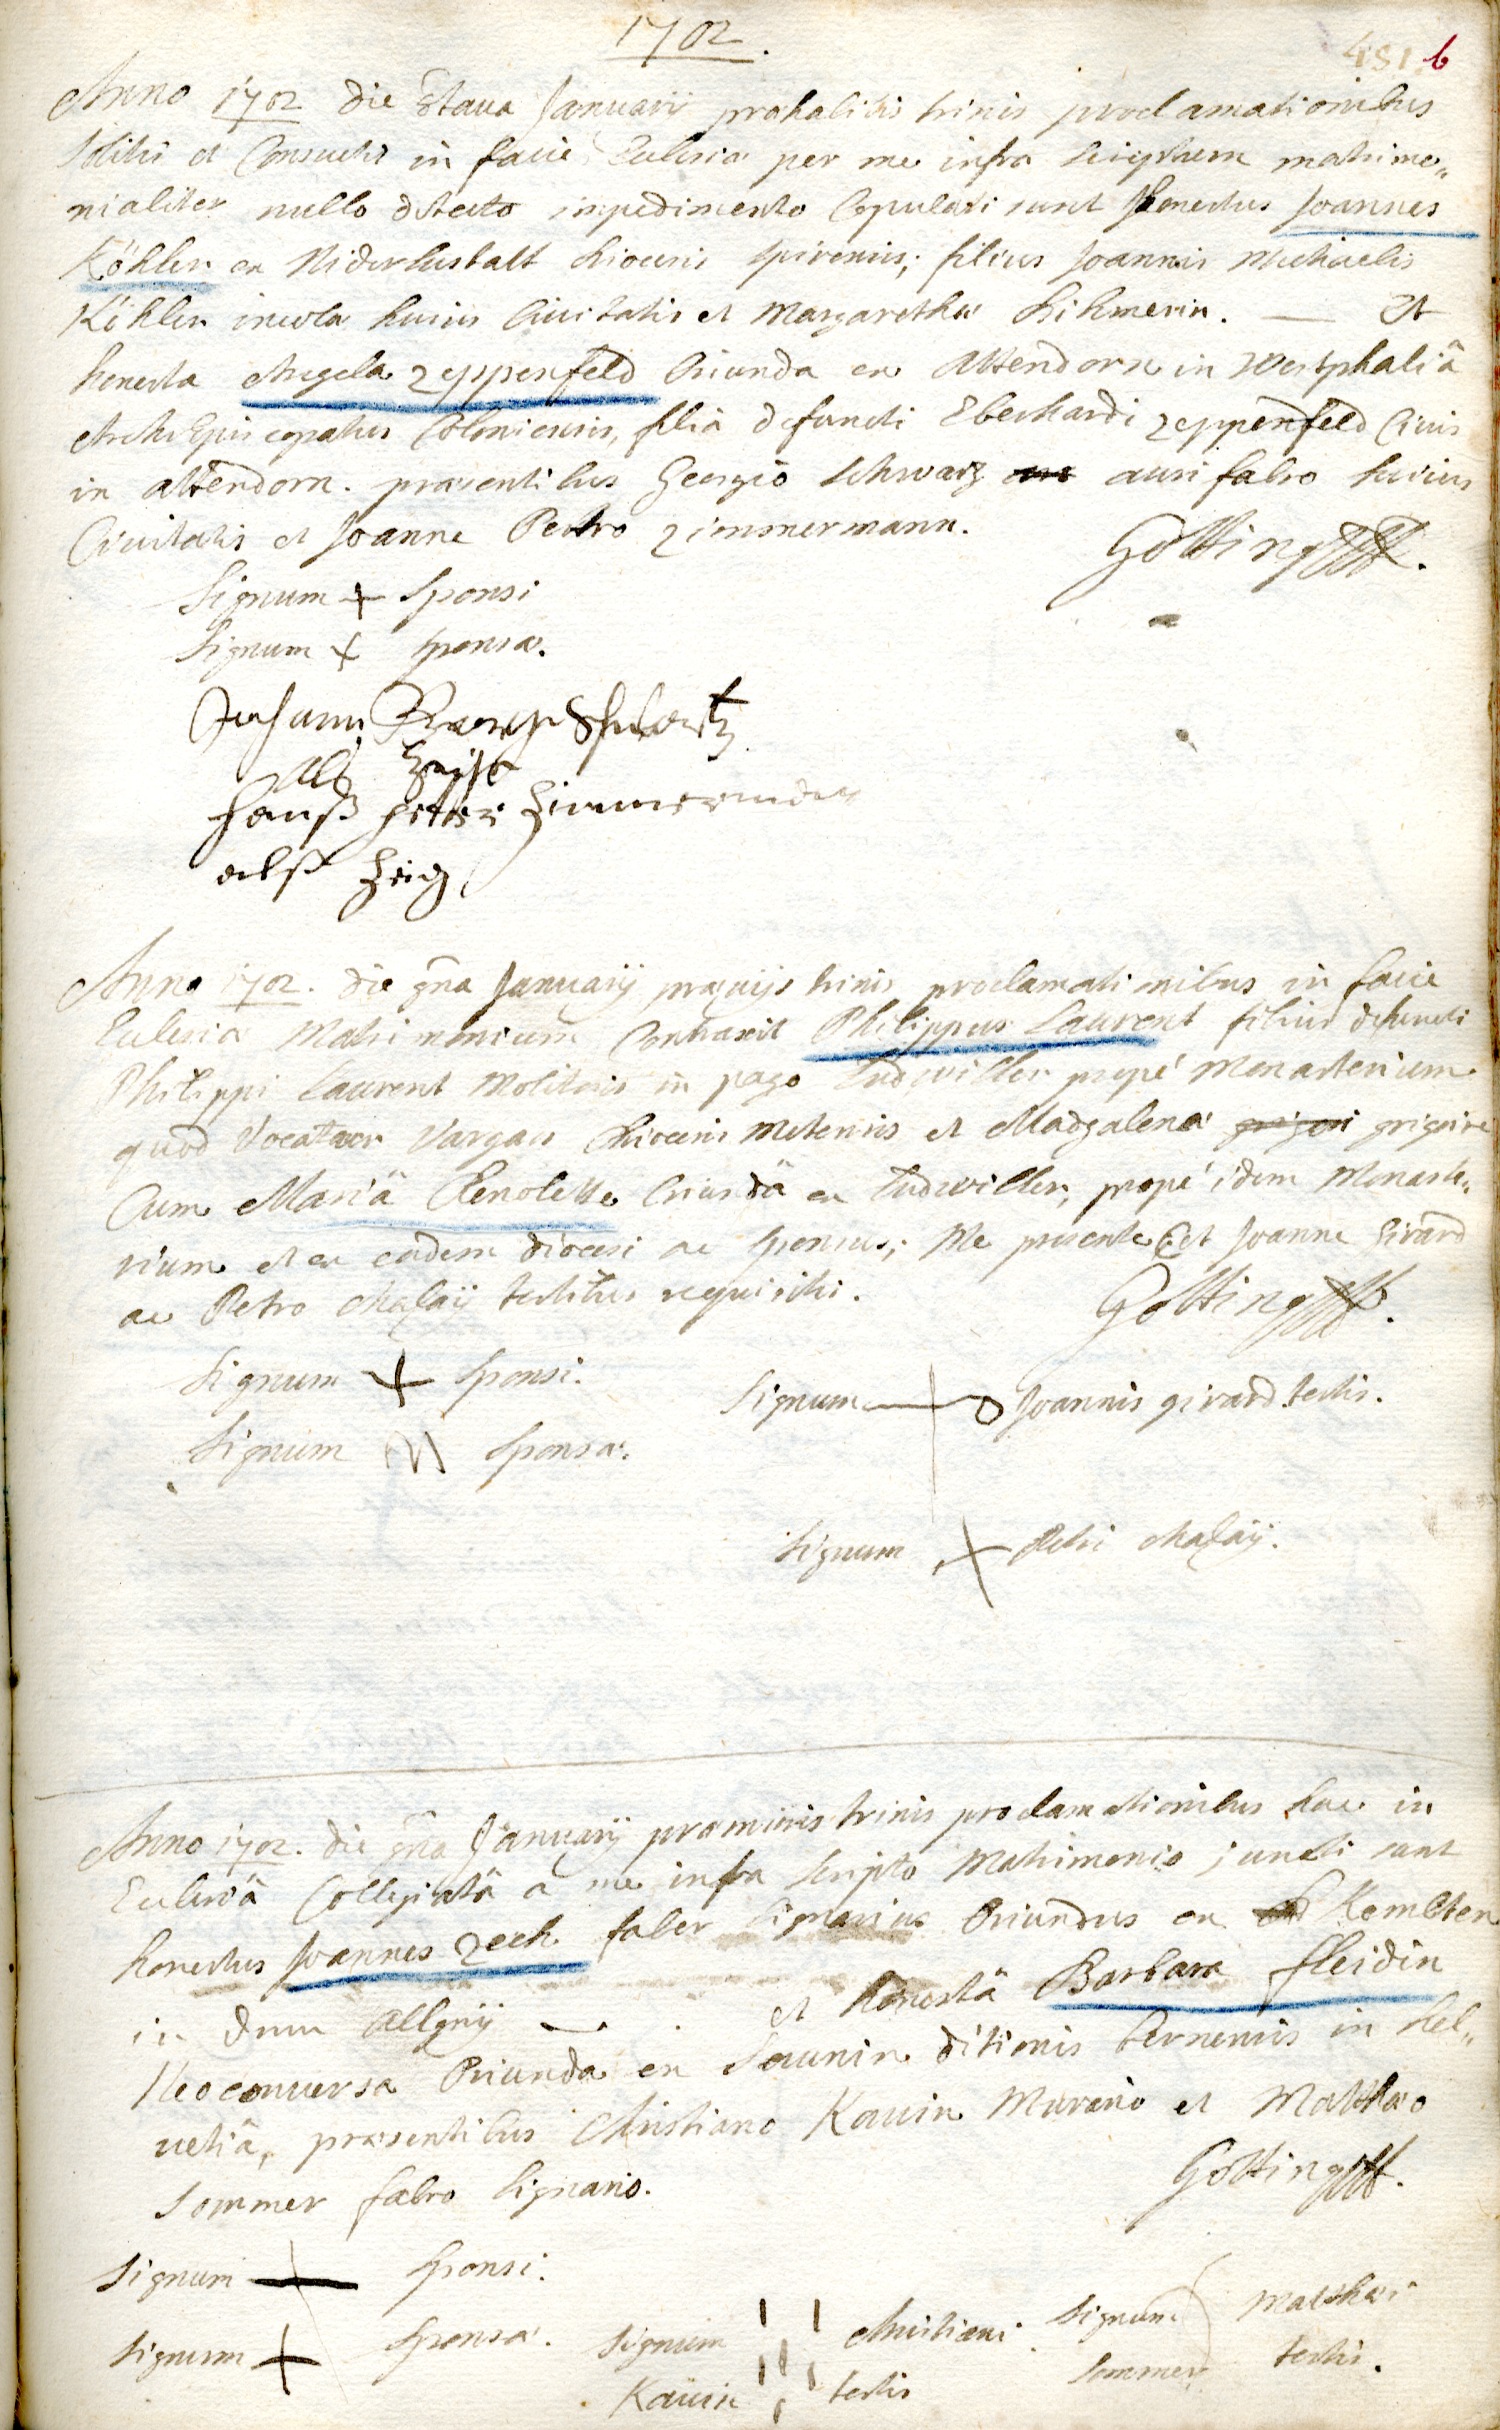 1702.
481. b
Anno 1702 die 8tava Januarij prohabitis trinis proclamationibus
solitis et Consuetis in facie Ecclesiæ per me infra scriptum matrimo„
nialiter nullo detecto impedimento Copulati sunt Honestus Joannes
Köhler ex Niderlustatt diocesis spirensis; filius Joannis Michaelis
Köhler incola huius Civitatis et Margarethæ . — Et
honesta Angela Zeppenfeld Oriunda ex Attendorn in Westphaliâ
Archiepiscopatus Coloniensis, filia defuncti Eberhardi Zeppenfeld Civis
in attendorn. præsentibus Georgio Schwartz aurifabro huius
Civitatis et Joanne Petro Zimmermann.
Götting
Signum + Sponsi
Signum + sponsæ.
Johann Georg Schwartz
als Zeuge
Hanß Peter Zimmermann
alß Zeig
Anno 1702. die 9na Januarij prævijs trinis proclamationibus in facie
Ecclesiæ Matrimonium Contraxit Philippus Laurent filius defuncti
Philippi Laurent Molitoris in pago Ludwiller propè Monasterium
quod Vocatur diocesis Metensis et Madgalenæ grigoire
Cum Mariâ Renolette Oriundâ ex Ludwiller, propè idem Monaste„
rium et ex eadem diocesi ac sponsus; Me presente et Joanne Girard
ac Petro testibus requisitis.
Götting
Signum + Sponsi.
Signum Sponsæ.
Signum Joannis girard testis.
Signum + Petri
Anno 1702. die 9na Januarij præmissis trinis proclamationibus hac in
Ecclesiâ Collegiatâ a me infra scripto Matrimonio juncti sunt
honestus Joannes Zech faber lignarius Oriundus ex Kembten
in —
et honestâ Barbara fleidin
Neoconversa Oriunda ex ditionis bernensis in hel„
vetiâ, præsentibus Christiano Kauin Murario et Matthæo
Sommer fabro lignario.
Götting
Signum + Sponsi.
Signum + Sponsæ.
Signum Christiani
Kauin testis
Signum Matthæi
Sommer testis.